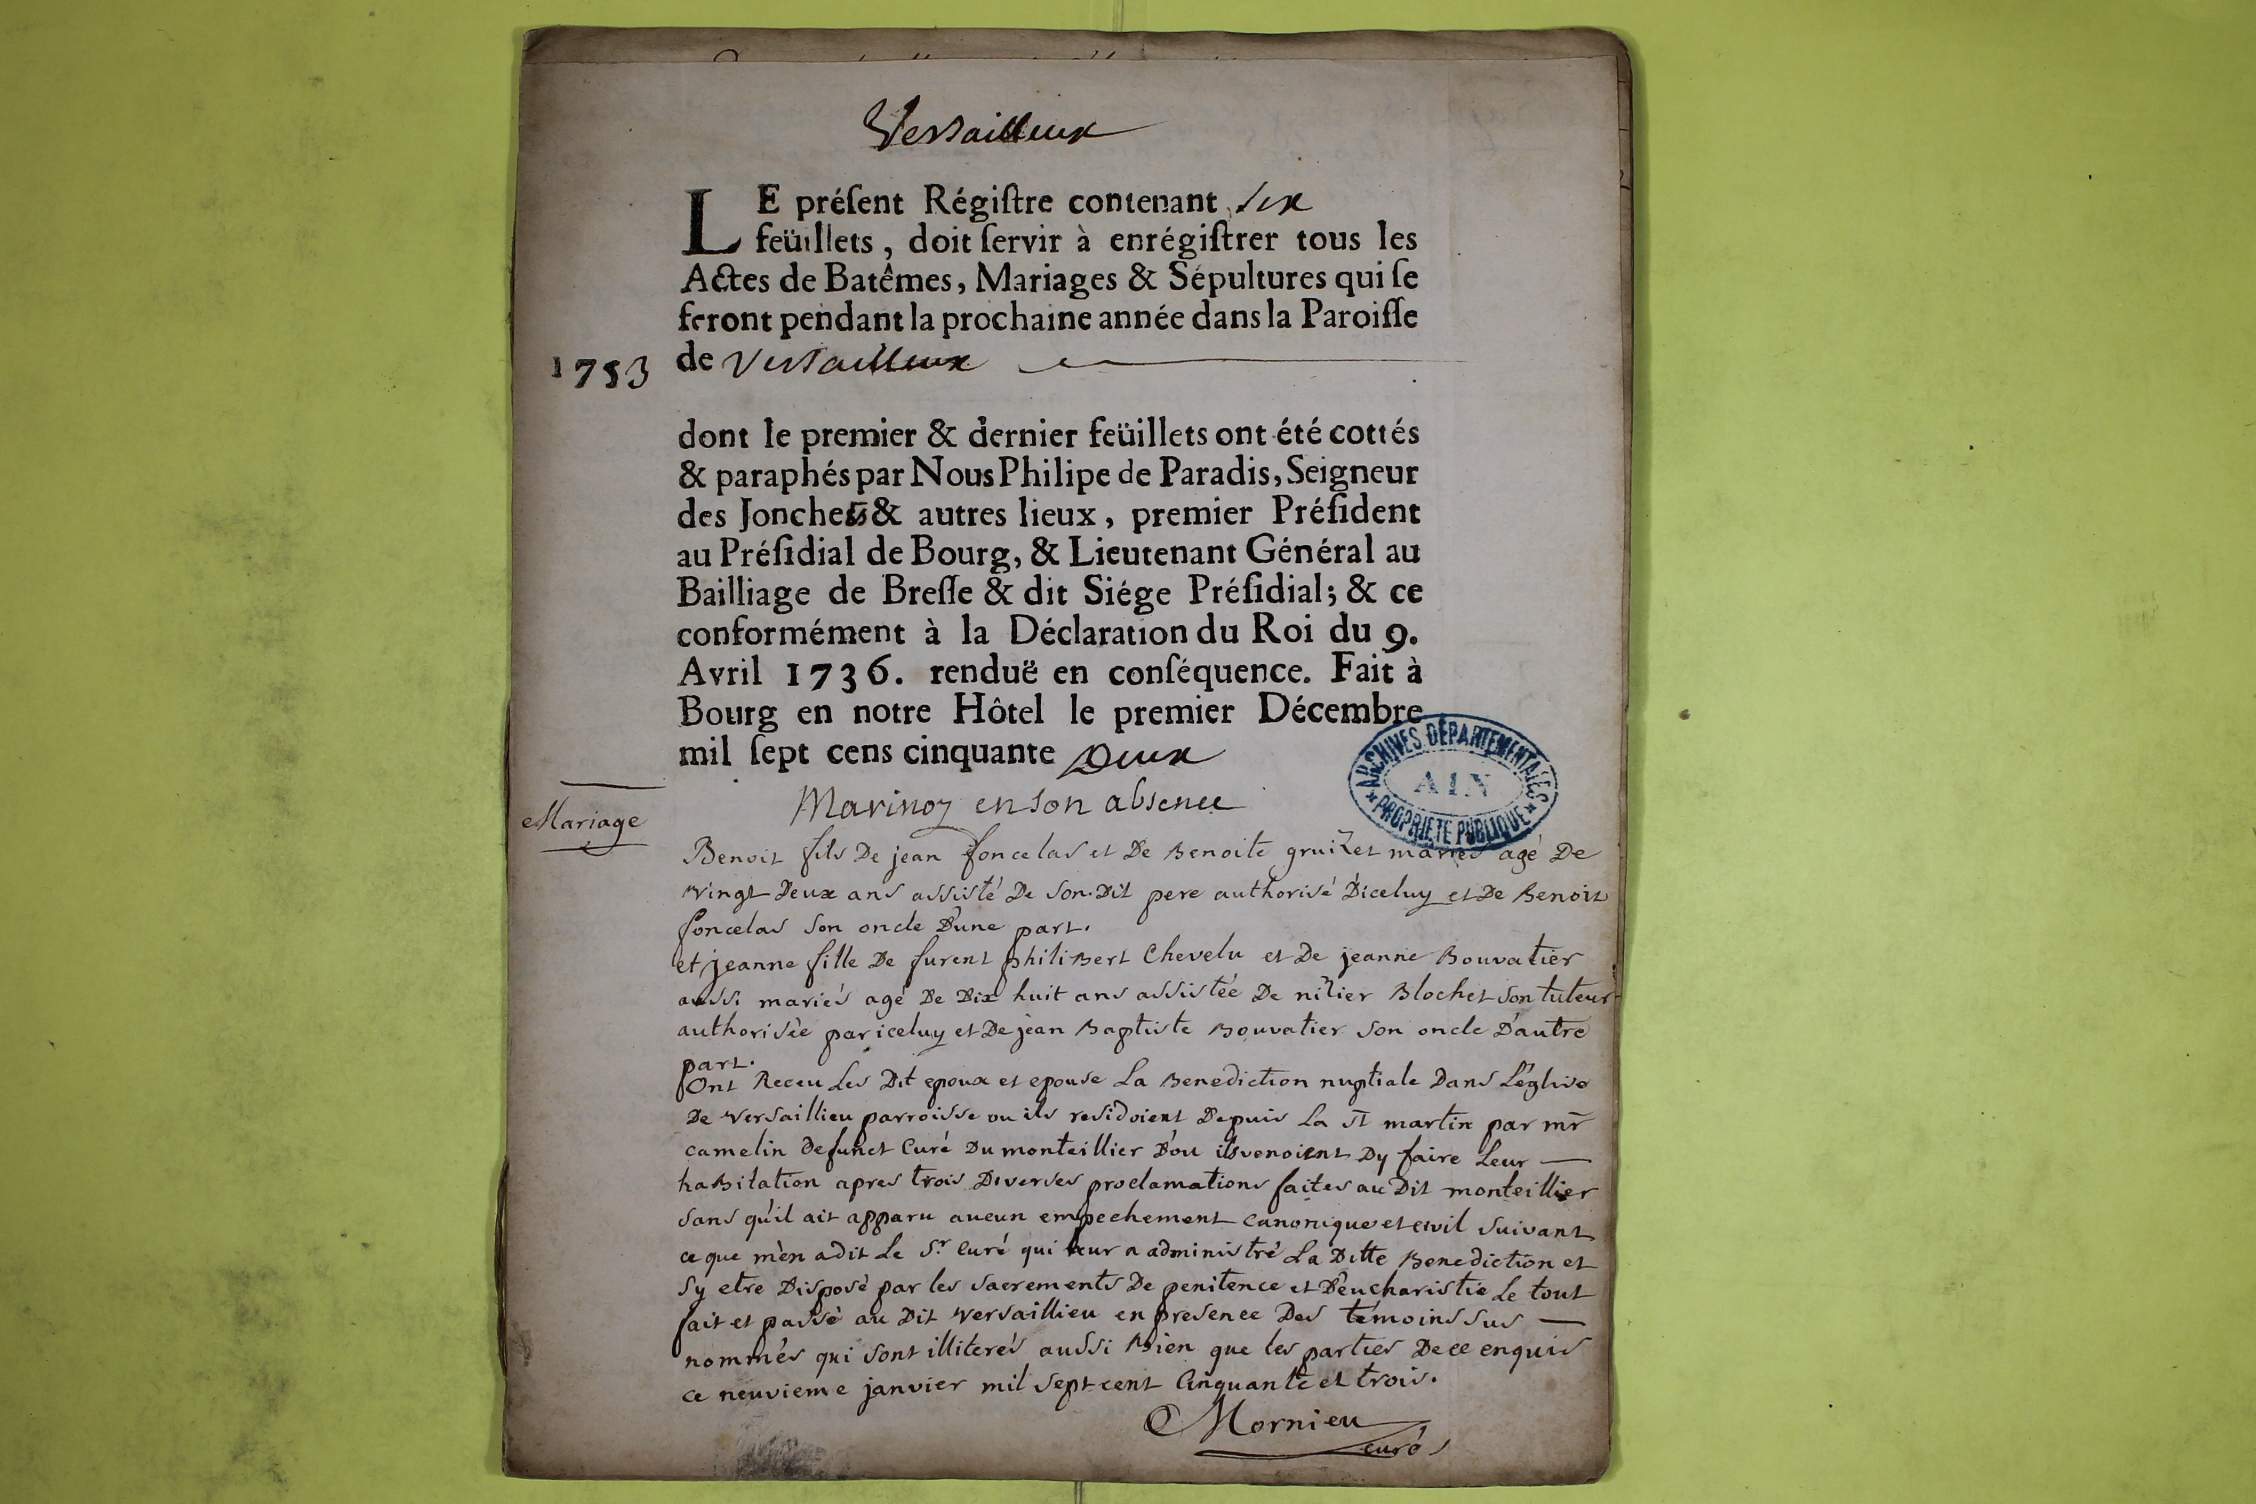 Versailleux
LE préſent Régiſtre contenant six
feüillets, doit ſervir à enrégiſtrer tous les
Actes de Batêmes, Mariages & Sépultures qui ſe
feront pendant la prochaine année dans la Paroiſſe
1753 de Versailleux
dont le premier & dernier feüillets ont été cottés
& paraphés par Nous Philipe de Paradis, Seigneur
des Jonches & autres lieux, premier Préſident
au Préſidial de Bourg, & Lieutenant Général au
Bailliage de Breſſe & dit Siége Préſidial; & ce
conformément à la Déclaration du Roi du 9.
Avril 1736. renduë en conſéquence. Fait à
Bourg en notre Hôtel le premier Décembre
mil ſept cens cinquante Deux
ARCHIVES DÉPARTEMENTALES
AIN
PROPRIÉTÉ PUBLIQUE
Marinoz en son absence
Mariage
Benoit fils De jean foncelas et De Benoite gruizet mariés agé De
vingt Deux ans assisté De son Dit pere authorisé D'iceluy et De Benoit
foncelas son oncle D'une part.
et jeanne fille De furent philiBert Chevelu et De jeanne Bouvatier
aussi mariés agé De Dix huit ans assistée De nizier Blochet son tuteur
authorisée par iceluy et De jean Baptiste Bouvatier son oncle D'autre
part.
Ont Receu Les Dit epoux et epouse La Benediction nuptiale Dans L'eglise
De Versaillieu parroisse ou ils residoient Depuis La St martin par mr
camelin Defunct Curé Du monteillier D'ou ils venoient Dy faire Leur
haBitation apres trois Diverses proclamations faites au Dit monteillier
sans qu'il ait apparu aucun empechement canonique et civil suivant
ce que m'en a dit Le Sr Curé qui leur a administré La Ditte Benediction et
sy etre Disposé par les sacrements De penitence et D'eucharistie Le tout
fait et passé au Dit Versaillieu en presence Des témoins sus
nommés qui sont illiterés aussi Bien que les parties De ce enquis
ce neuvieme janvier mil sept cent Cinquante et trois.
Mornieu
curé